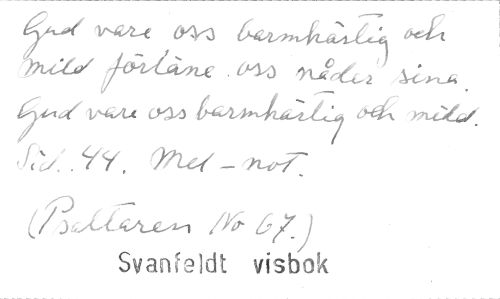 Gud vare oss barmhärtig och
mild förläne oss nåder sina.
Gud vare oss barmhärtig och mild.
Sid. 44. Mel-not.
(Psaltaren No 67.)
Svanfeldt visbok